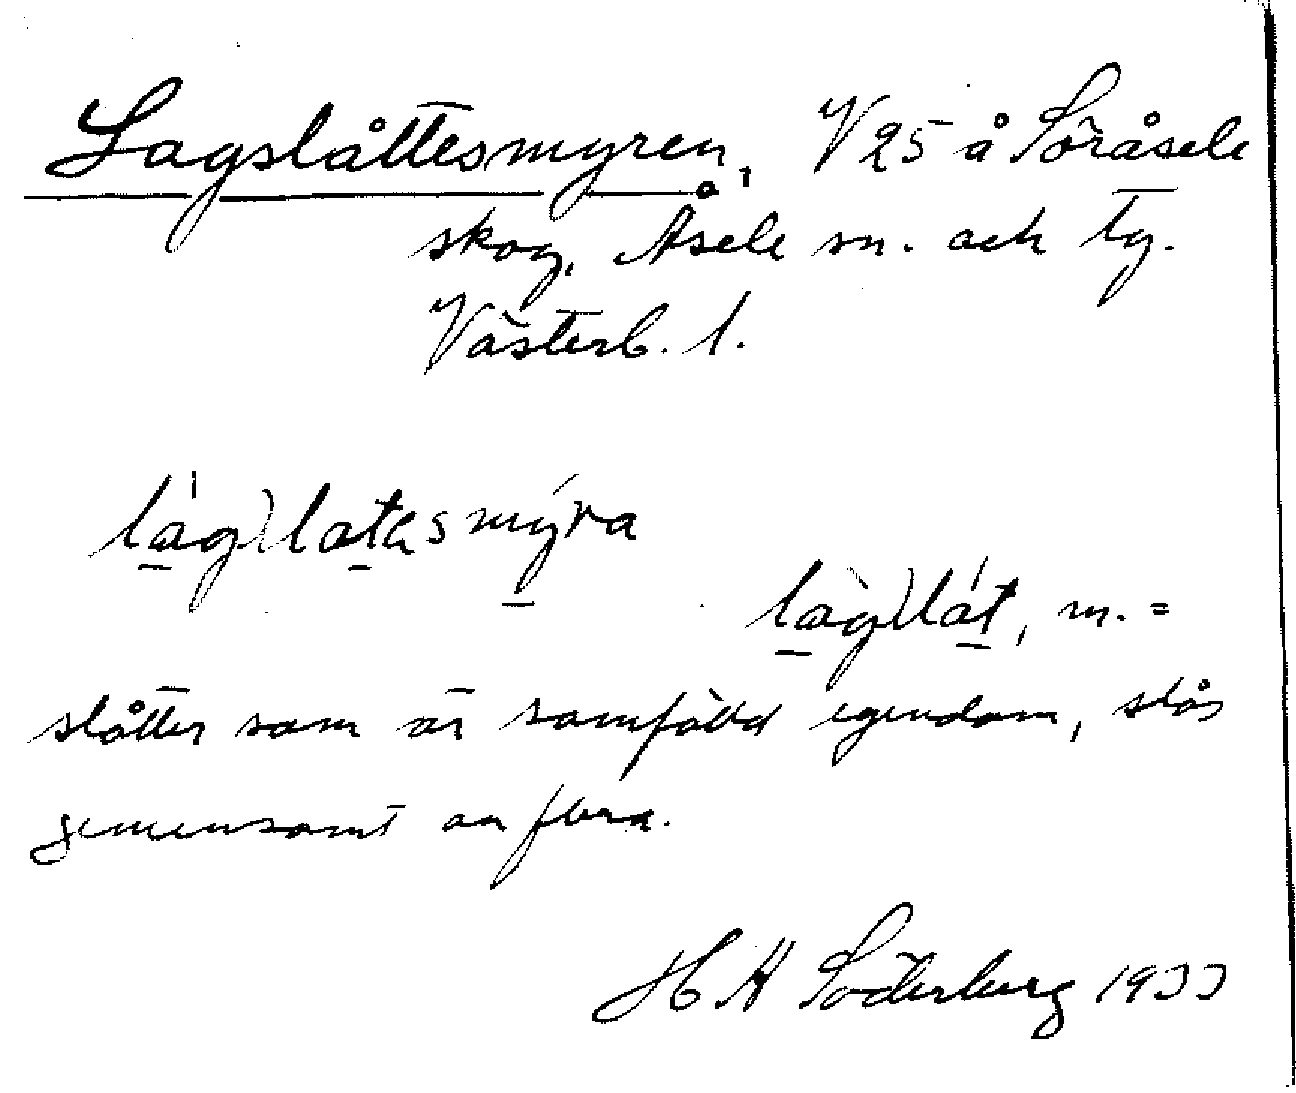 Lagslåttesmyren, V 25 å Söråsele
skog, Åsele sn. och tg.
Västerb. l.
lágslatasmýra
làgslát, m. =
slåtter som är samfälld egendom, slås
gemensamt av flera.
H A Söderberg 1933